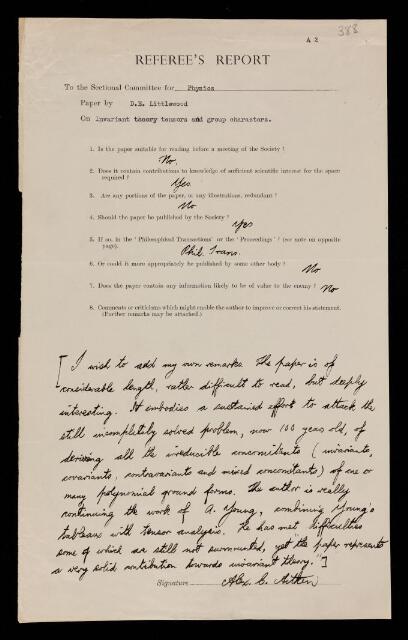 A 2
388
REFEREE'S REPORT
To the Sectional Committee for Physics
Paper by D.E. Littlewood
On Invariant theory tensors and group characters.
1. Is the paper suitable for reading before a meeting of the Society ?
No.
2. Does it contain contributions to knowledge of sufficient scientific interest for the space
required ?
Yes
3. Are any portions of the paper, or any illustrations, redundant ?
No
4. Should the paper be published by the Society ?
Yes
5. If so, in the 'Philosophical Transactions' or the 'Proceedings' ? (see note on opposite
page).
Phil. Trans.
6. Or could it more appropriately be published by some other body ?
No
7. Does the paper contain any information likely to be of value to the enemy ? No
8. Comments or criticisms which might enable the author to improve or correct his statement.
(Further remarks may be attached.)
[I wish to add my own remarks. The paper is of
considerable length, rather difficult to read, but deeply
interesting. It embodies a sustained effort to attack the
still incompletely solved problem, now 100 years old, of
deriving all the irreducible concomitants (invariants,
covariants, contravariants and mixed concomitants) of one or
many polynomial ground forms. The author is really
continuing the work of A. Young, combining Young's
tableaux with tensor analysis. He has met difficulties
some of which are still not surmounted, yet "the paper represents
a very solid contribution towards invariant theory."]
Signature Alex. C. Aitken